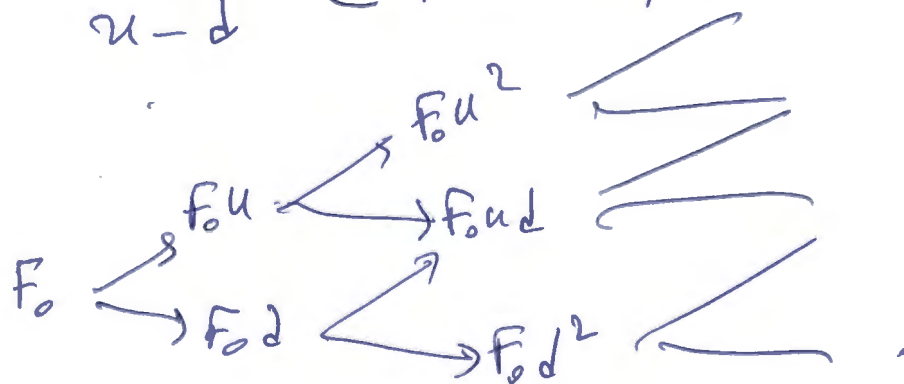 u - d
F₀u²
F₀u
F₀ud
F₀
F₀d
F₀d²